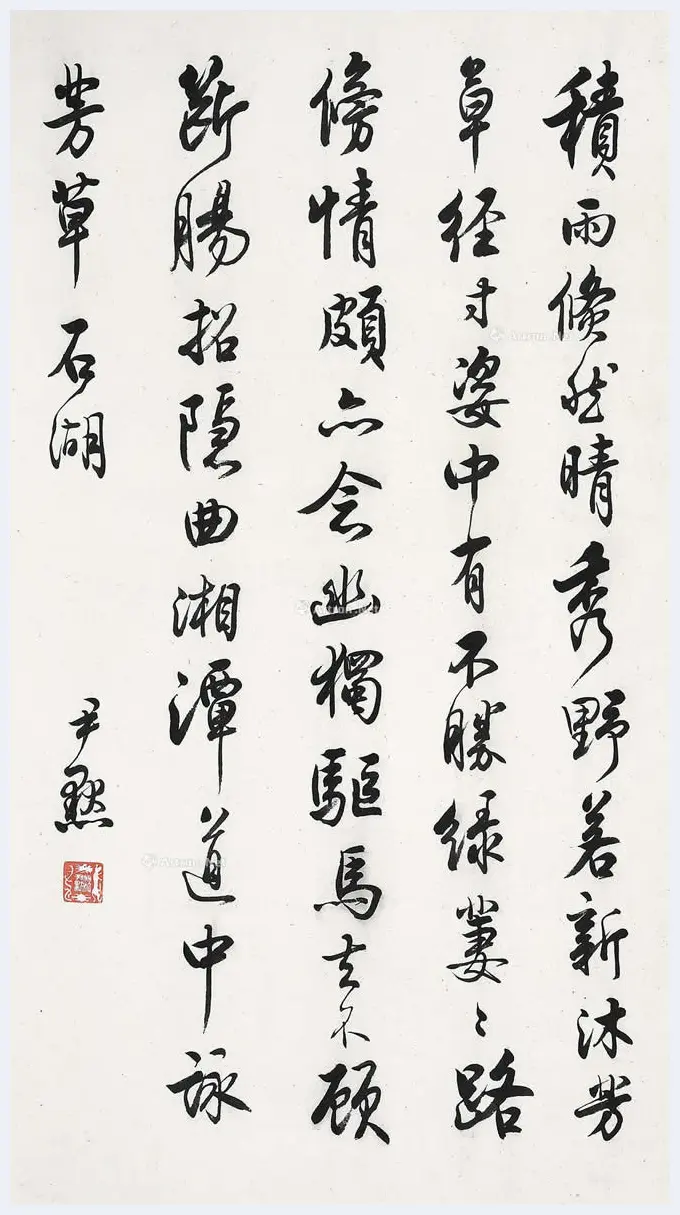 積雨倏然晴秀野若新沐芳
草徑寸姿中有不勝綠萋〻路
傍情頗亦念幽獨驅馬去不顧
斷腸招隱曲湘潭道中詠
芳草石湖
尹默